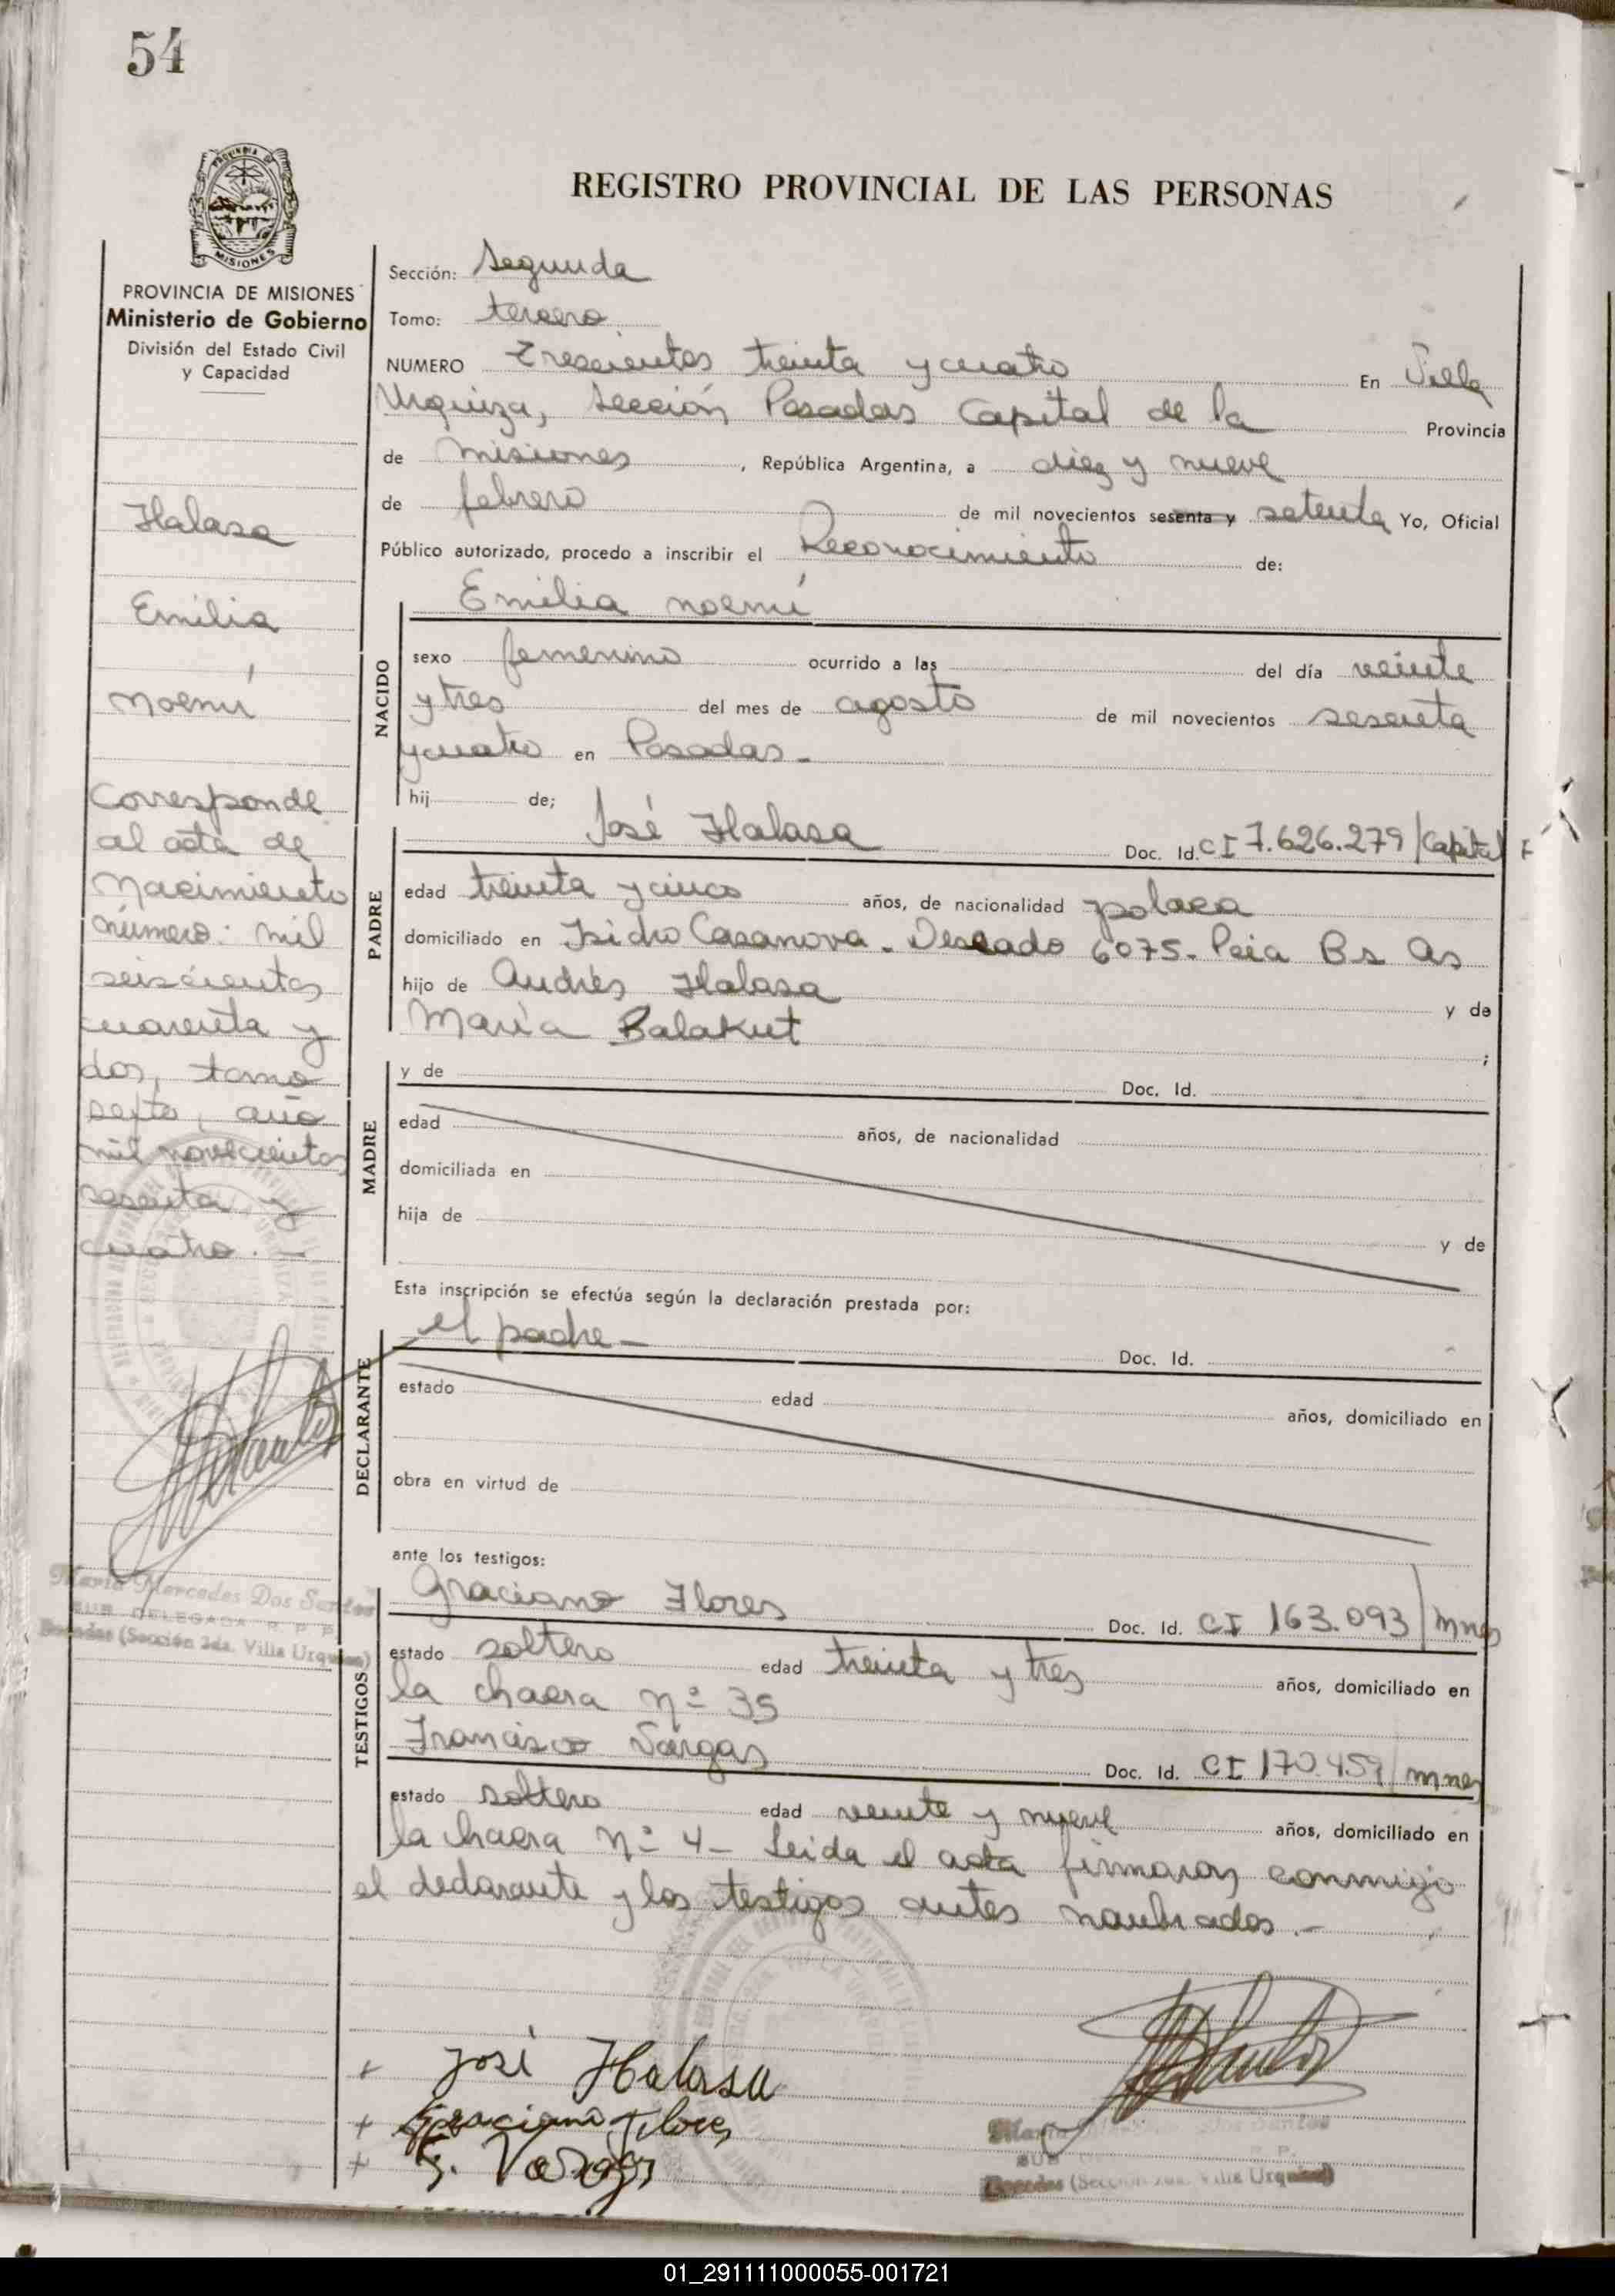 54
REGISTRO PROVINCIAL DE LAS PERSONAS
PROVINCIA DE MISIONES
Ministerio de Gobierno
División del Estado Civil
y Capacidad
Halasa
Emilia
Noemí
Corresponde
al acta de
Nacimiento
número: mil
seiscientos
cuarenta y
dos, tomo
sexto, año
mil novecientos
sesenta y
cuatro. —
Maria Mercedes Dos Santos
SUB DELEGADA R. P. P.
Posadas (Sección 2da. Villa Urquiza)
Sección: Segunda
Tomo: tercero
NUMERO Trescientos treinta y cuatro En Villa
Urquiza, Sección Posadas Capital de la Provincia
de Misiones, República Argentina, a diez y nueve
de febrero de mil novecientos sesenta y setenta Yo, Oficial
Público autorizado, procedo a inscribir el Reconocimiento de:
Emilia Noemí
NACIDO
sexo femenino ocurrido a las del día veinte
y tres del mes de agosto de mil novecientos sesenta
y cuatro en Posadas.-
hij de;
José Halasa Doc. Id. CI 7.626.279/Capital F
PADRE
edad treinta y cinco años, de nacionalidad polaca
domiciliado en Isidro Casanova. Deseado 6075. Pcia Bs As
hijo de Andrés Halasa y de
María Balakut ;
MADRE
y de Doc. Id.
edad años, de nacionalidad
domiciliada en
hija de y de
Esta inscripción se efectúa según la declaración prestada por:
DECLARANTE
el padre — Doc. Id.
estado edad años, domiciliado en
obra en virtud de
ante los testigos:
TESTIGOS
Graciano Flores Doc. Id. CI 163.093/mnes
estado soltero edad treinta y tres años, domiciliado en
la chacra Nº 35
Francisco Vargas Doc. Id. CI 170.459/mnes
estado soltero edad veinte y nueve años, domiciliado en
la chacra Nº 4- Leida el acta firmaron conmigo
el declarante y los testigos antes nombrados.-
+ José Halasa
+ Graciano Flores
+ F. Vargas
Posadas (Sección 2da. Villa Urquiza)
01_291111000055-001721